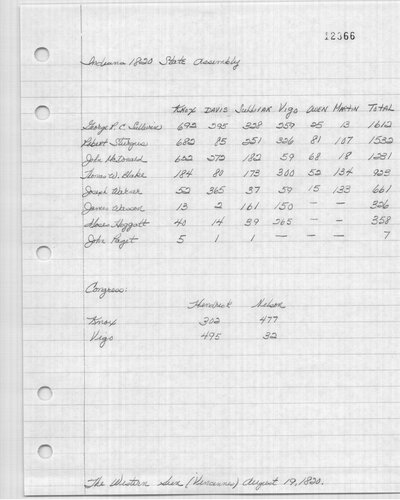 12366
Indiana 1820 State Assembly
Knox DAVIS Sullivan Vigo OWEN MARTIN TOTAL
George R. C. Sullivan 692 295 328 259 25 13 1612
Robert Sturgus 682 85 251 326 81 107 1532
John McDonald 632 272 182 59 68 18 1231
Thomas W. Blake 184 80 173 300 52 134 923
Joseph Warner 52 365 37 59 15 133 661
James Wasson 13 2 161 150 — — 326
Moses Hoggatt 40 14 39 265 — — 358
John Paget 5 1 1 — — — 7
Congress:
Hendrick Nelson
Knox 302 477
Vigo 495 32
The Western Sun (Vincennes) August 19, 1820.